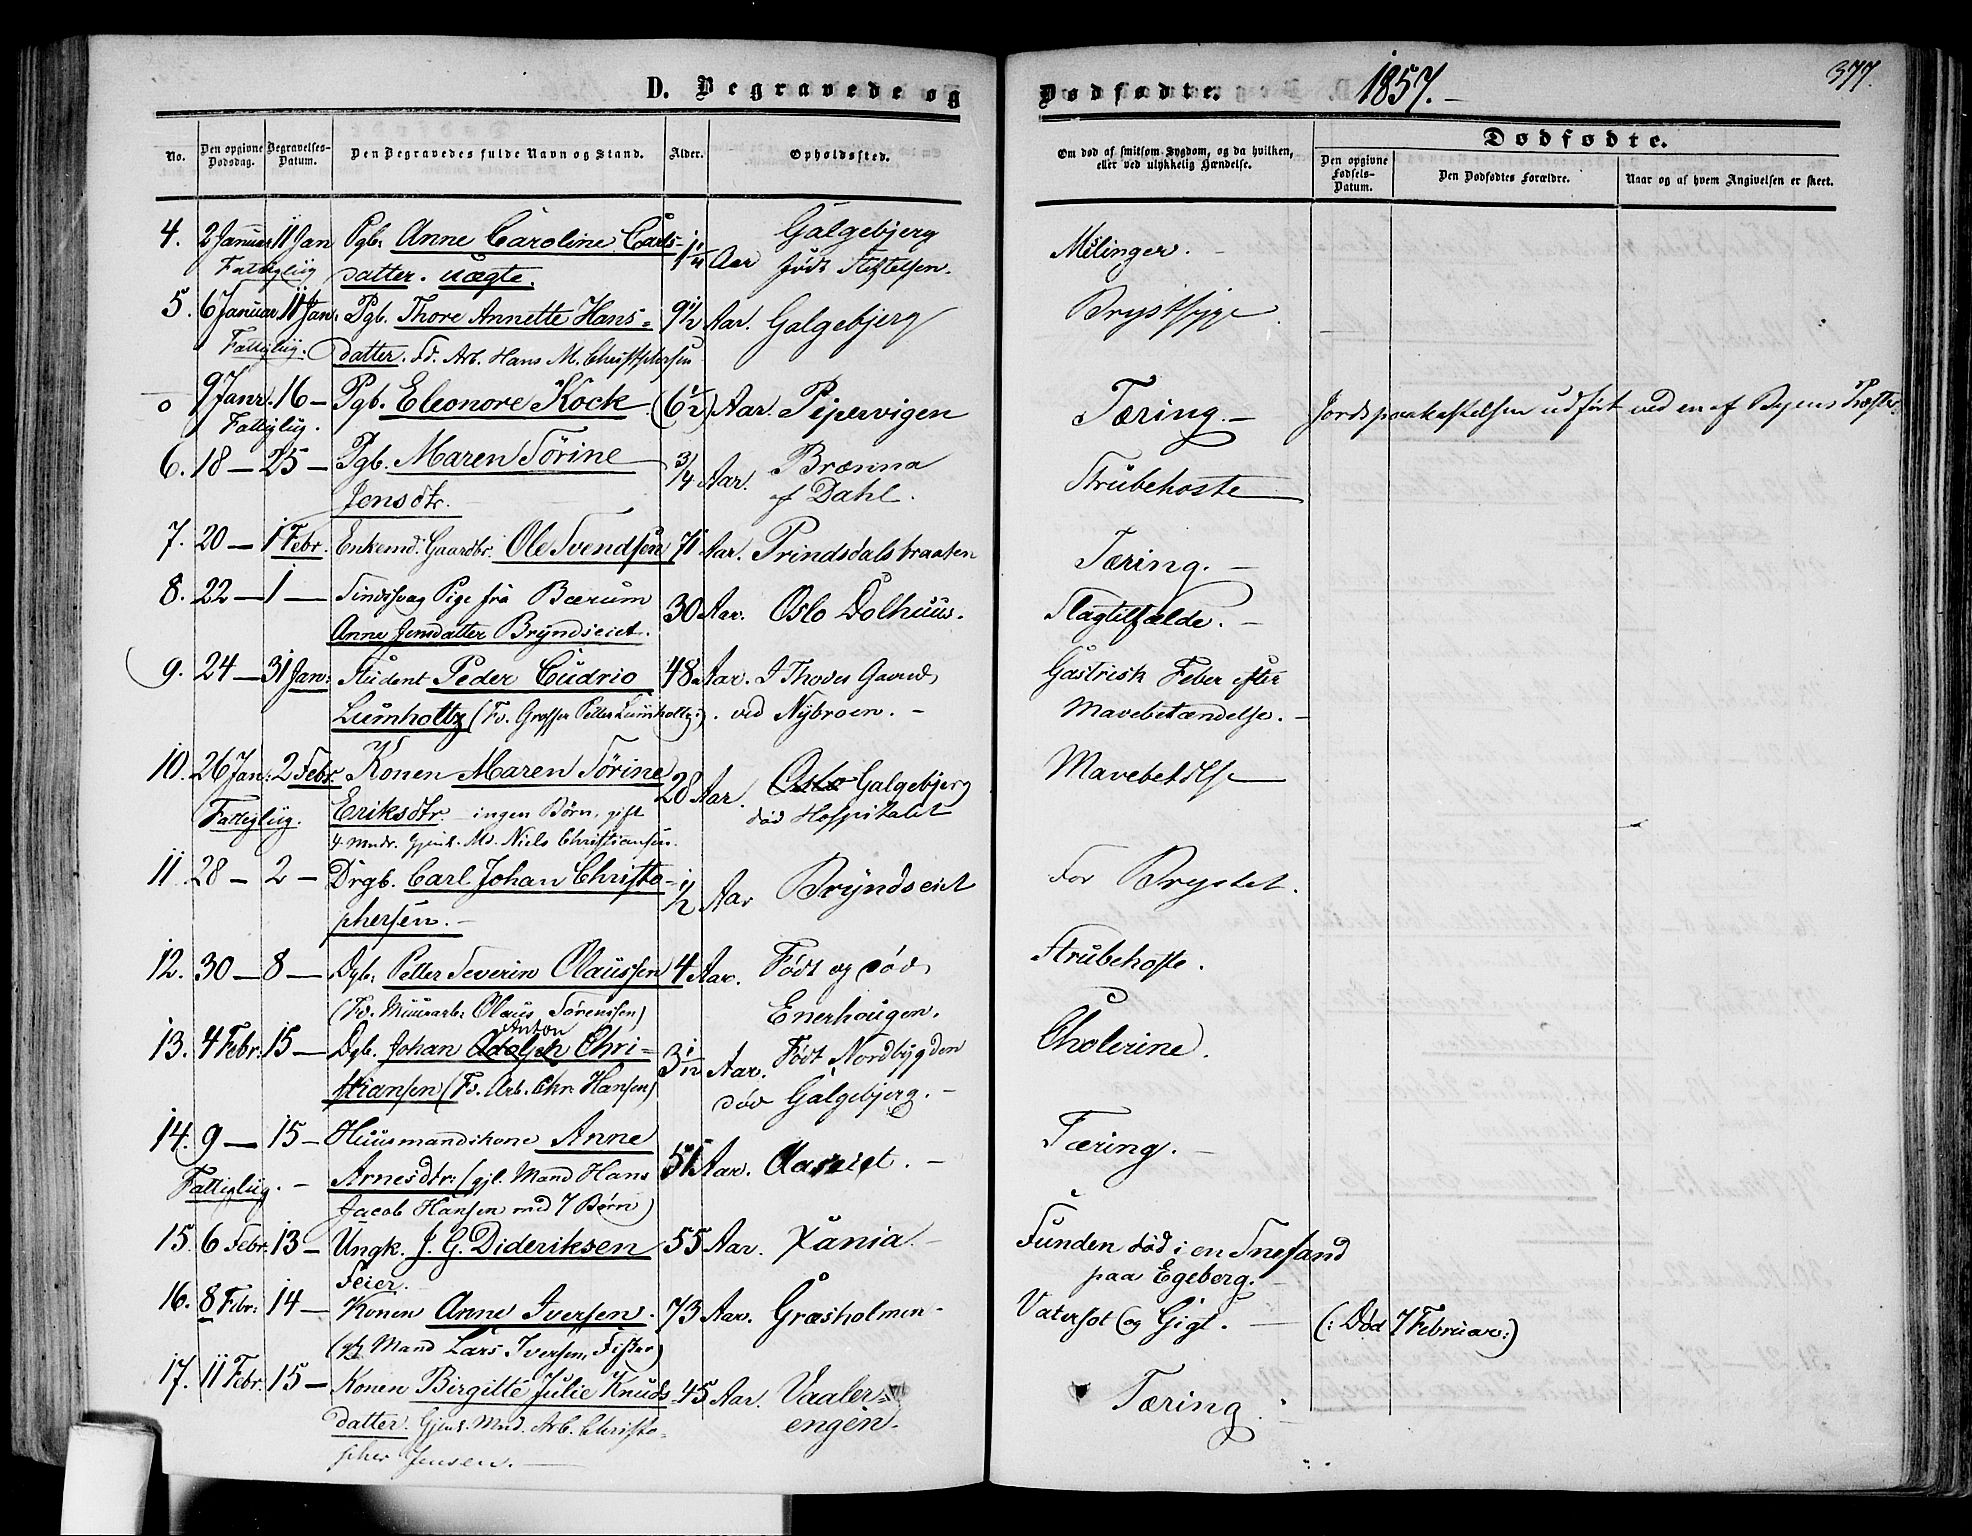 D. Begravede og
Dødfødte. 1857.
377.
No.
Den opgivne Dødsdag.
Begravelses-Datum.
Den Begravedes fulde Navn og Stand.
Alder.
Opholdssted.
Om død af smitsom Sygdom, og da hvilken, eller ved ulykkelig Hændelse.
Dødfødte.
Den opgivne Fødsels-Datum.
Den Dødfødtes Forældre.
Naar og af hvem Angivelsen er skeet.
4. 2 Januar 11 Jan Pgb. Anne Caroline Carls- Aar Galgebjerg Mælinger.
Fattiglig datter. uægte. født Stiftelsen.
5. 6 Januar 11 Jan. Pgb. Thore Annette Hans- 9 1/2 Aar. Galgebjerg Brystsyge
Fattiglig. datter. Fd. Arb. Hans M. Christophersen
o 9 Janr. 16 – Pgb. Eleonore Kock (6 1/2) Aar. Pipervigen Tæring. – Jordspaakastelsen udført ved en af Byens Præster.
Fattiglig.
6. 18 – 25 – Pgb. Maren Sörine 3/4 Aar. Brænna Strubehoste
Jensdtr. af Dahl.
7. 20 – 1 Febr. Enkemd. Gaardbr. Ole Svendsen 71 Aar. Prindsdalsbraaten Tæring. –
8. 22 – 1 – Sindssvag Pige fra Bærum 30 Aar. Oslo Dolhuus. Slagtilfælde. –
Anne Jensdatter Bryndseiet.
9. 24 – 31 Jan: Student Peder Cudrio 48 Aar. I Thodes Gaard Gastrisk Feber efter
Lumholtz (Fv. Grosser Petter Lumholtz). ved Nybroen. – Mavebetændelse. –
10. 26 Jan: 2 Febr. Konen Maren Sörine 28 Aar. Oslo Galgebjerg Mavebetdlse
Fattiglig. Eriksdtr. – ingen Børn, gift død Hospitalet
4 Mndr. Gjenl. Md. Niels Christiansen.
11. 28 – 2 – Drgb. Carl Johan Christo- 1/2 Aar Bryndseiet For Brystet.
phersen. –
12. 30 – 8 – Dgb. Petter Severin Olaussen 4 Aar. Født og død Strubehoste.
(Fv. Muurarb. Olaus Sörenssen) Enerhougen.
13. 4 Febr: 15 – Dgb. Johan Adolph Anton Chri- 3 1/12 Aar. Født Nordbygden Cholerine.
stiansen (Fv. Arb. Chr. Hansen) død Galgebjerg. –
14. 9 – 15 – Huusmandskone Anne 51 Aar. – Tæring. –
Fattiglig. – Arnesdtr. (gjl. Mand Hans
Jacob Hansen med 7 Børn)
15. 6 Febr. 13 – Ungk. J. G. Dideriksen 55 Aar. Xania. – Funden død i en Snefand
Feier. paa Egeberg. –
16. 8 Febr: 14 – Konen Anne Iversen. 73 Aar. Græsholmen. Vatersot og Gigt. – (: Død 7 Februar:)
(gl. Mand Lars Iversen, Fisker)
17. 11 Febr. 15 – Konen Birgitte Julie Knuds- 45 Aar. Vaaler- Tæring.
datter. Gjenl. Mnd. Arb. Christo- engen.
pher Jensen. –